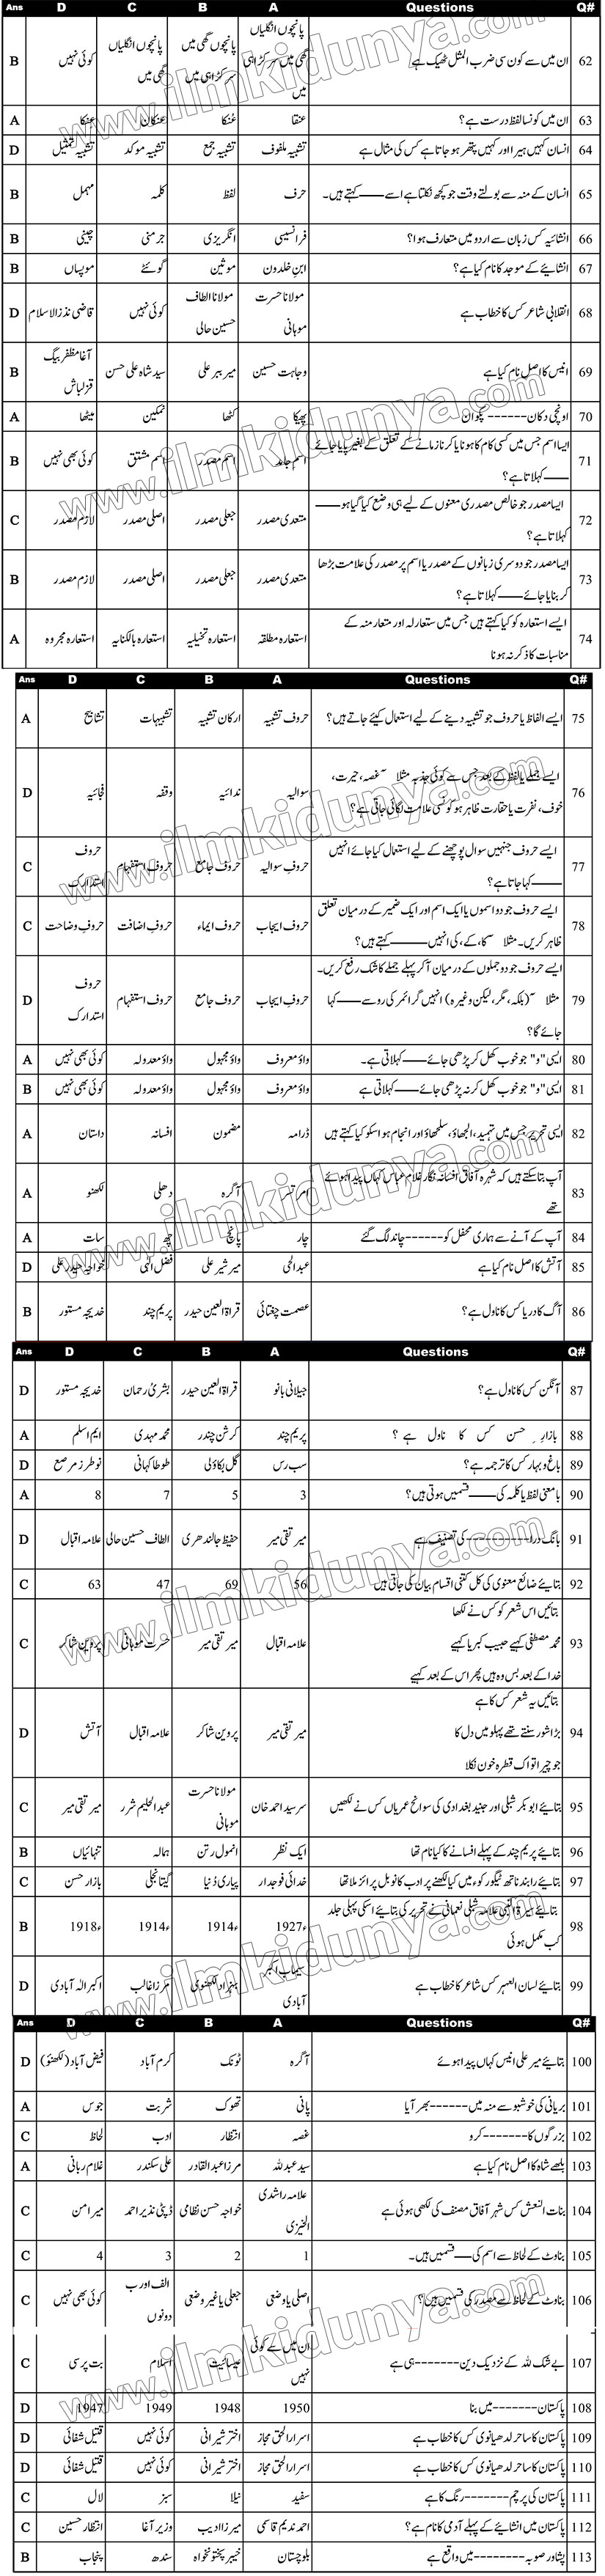 Ans D C B A Questions Q#
62 ان میں سے کون سی ضرب المثل ٹھیک ہے پانچوں انگلیاں گھی میں سر کڑاہی میں پانچوں گھی میں سر کڑاہی میں پانچوں انگلیاں گھی میں کوئی نہیں B
63 ان میں کونسا لفظ درست ہے؟ عنقا عُنکا عنکان عِنکا A
64 انسان کہیں ہیرا اور کہیں پتھر ہو جاتا ہے کس کی مثال ہے تشبیہ ملفوف تشبیہ جمع تشبیہ موکد تشبیہ تمثیل D
65 انسان کے منہ سے بولتے وقت جو کچھ نکلتا ہے اسے ——— کہتے ہیں۔ حرف لفظ کلمہ مہمل B
66 انشائیہ کس زبان سے اردو میں متعارف ہوا؟ فرانسیسی انگریزی جرمنی چینی B
67 انشائیے کے موجد کا نام کیا ہے؟ ابن خلدون مونٹین گوئٹے موپساں B
68 انقلابی شاعر کس کا خطاب ہے مولانا حسرت موہانی مولانا الطاف حسین حالی کوئی نہیں قاضی نذر الاسلام D
69 انیس کا اصل نام کیا ہے وجاہت حسین میر ببر علی سید شاہ علی حسن آغا مظفر بیگ قزلباش B
70 اونچی دکان ------ پکوان پھیکا کٹھا نمکین میٹھا A
71 ایسا اسم جس میں کسی کام کا ہونا یا کرنا زمانے کے تعلق کے بغیر پایا جائے ——— کہلاتا ہے؟ اسم جامد اسم مصدر اسم مشتق کوئی بھی نہیں B
72 ایسا مصدر جو خالص مصدری معنوں کے لیے ہی وضع کیا گیا ہو ——— کہلاتا ہے؟ متعدی مصدر جعلی مصدر اصلی مصدر لازم مصدر C
73 ایسا مصدر جو دوسری زبانوں کے مصدر یا اسم پر مصدر کی علامت بڑھا کر بنایا جائے ——— کہلاتا ہے؟ متعدی مصدر جعلی مصدر اصلی مصدر لازم مصدر B
74 ایسے استعارہ کو کیا کہتے ہیں جس میں ستعارلہ اور متعار منہ کے مناسبات کا ذکر نہ ہونا استعارہ مطلقہ استعارہ تخیلیہ استعارہ بالکنایہ استعارہ مجردہ A
Ans D C B A Questions Q#
75 ایسے الفاظ یا حروف جو تشبیہ دینے کے لیے استعمال کیئے جاتے ہیں؟ حروف تشبیہ ارکان تشبیہ تشبیہات تشابیح A
76 ایسے جملے یا لفظ کے بعد جس سے کوئی جذبہ مثلاً غصہ، حیرت، خوف، نفرت یا حقارت ظاہر ہو کونسی علامت لگائی جاتی ہے؟ سوالیہ ندائیہ وقفہ فجائیہ D
77 ایسے حروف جنہیں سوال پوچھنے کے لیے استعمال کیا جائے انہیں ——— کہا جاتا ہے؟ حروفِ سوالیہ حروف جامع حروف استفہام حروف استدارک C
78 ایسے حروف جو دو اسموں یا ایک اسم اور ایک ضمیر کے درمیان تعلق ظاہر کریں۔ مثلاً کا، کے، کی انہیں ——— کہتے ہیں؟ حروف ایجاب حروف ایماء حروف اضافت حروفِ وضاحت C
79 ایسے حروف جو دو جملوں کے درمیان آکر پہلے جملے کا شک رفع کریں۔ مثلاً (بلکہ، مگر، لیکن وغیرہ) انہیں گرائمر کی رو سے ——— کہا جائے گا؟ حروفِ ایجاب حروف جامع حروف استفہام حروف استدارک D
80 ایسی "و" جو خوب کھل کر پڑھی جائے ——— کہلاتی ہے۔ واؤ معروف واؤ مجہول واؤ معدولہ کوئی بھی نہیں A
81 ایسی "و" جو خوب کھل کر نہ پڑھی جائے ——— کہلاتی ہے واؤ معروف واؤ مجہول واؤ معدولہ کوئی بھی نہیں B
82 ایسی تحریر جس میں تمہید، الجھاؤ، سلجھاؤ اور انجام ہو اسکو کیا کہتے ہیں ڈرامہ مضمون افسانہ داستان A
83 آپ بتا سکتے ہیں کہ شہرہ آفاق افسانہ نگار غلام عباس کہاں پیدا ہوئے تھے امرتسر آگرہ دھلی لکھنو A
84 آپ کے آنے سے ہماری محفل کو ------ چاند لگ گئے چار پانچ چھ سات A
85 آتش کا اصل نام کیا ہے عبدالحئی میر شیر علی فضل الٰہی خواجہ حیدر علی D
86 آگ کا دریا کس کا ناول ہے؟ عصمت چغتائی قراۃ العین حیدر پریم چند خدیجہ مستور B
Ans D C B A Questions Q#
87 آنگن کس کا ناول ہے؟ جیلانی بانو قراۃ العین حیدر بشریٰ رحمان خدیجہ مستور D
88 بازارِ حسن کس کا ناول ہے ؟ پریم چند کرشن چندر محمد مہدی ایم اسلم A
89 باغ و بہار کس کا ترجمہ ہے؟ سب رس گل بکاؤلی طوطا کہانی نو طرز مرصع D
90 با معنی لفظ یا کلمہ کی ——— قسمیں ہوتی ہیں؟ 3 5 7 8 A
91 بانگ درا ---------- کی تصنیف ہے میر تقی میر حفیظ جالندھری الطاف حسین حالی علامہ اقبال D
92 بتایئے ضائع معنوی کی کل کتنی اقسام بیان کی جاتی ہیں 56 69 47 63 C
93 بتائیں اس شعر کو کس نے لکھا
محمد مصطفی کہیے حبیب کبریا کہیے
خدا کے بعد بس وہ ہیں پھر اس کے بعد کہیے علامہ اقبال میر تقی میر حسرت موہانی پروین شاکر C
94 بتائیں یہ شعر کس کا ہے
بڑا شور سنتے تھے پہلو میں دل کا
جو چیرا تو اک قطرہ خون نکلا میر تقی میر پروین شاکر علامہ اقبال آتش D
95 بتایئے ابو بکر شبلی اور جنید بغدادی کی سوانح عمریاں کس نے لکھیں سر سید احمد خان مولانا حسرت موہانی عبدالحلیم شرر میر تقی میر C
96 بتایئے پریم چند کے پہلے افسانے کا کیا نام تھا ایک نظر انمول رتن ہمالہ تنہائیاں B
97 بتایئے رابندناتھ ٹیگور کوء میں کیا لکھنے پر ادب کا نوبل پرائز ملا تھا خدائی فوجدار پیاری دُنیا گیتانجلی بازار حسن C
98 بتایئے سیرۃ النبی علامہ شبلی نعمانی نے تحریر کی بتایئے اسکی پہلی جلد کب مکمل ہوئی 1927ء 1914ء 1914ء 1918ء B
99 بتایئے لسان العہسر کس شاعر کا خطاب ہے سیماب اکبر آبادی بہزاد لکھنوی مرزا غالب اکبر الہ آبادی D
Ans D C B A Questions Q#
100 بتایئے میر علی انیس کہاں پیدا ہوئے آگرہ ٹونک کرم آباد فیض آباد (لکھنؤ) D
101 بریانی کی خوشبو سے منہ میں ------ بھر آیا پانی تھوک شربت جوس A
102 بزرگوں کا ------- کرو غصہ انتظار ادب لحاظ C
103 بلھے شاہ کا اصل نام کیا ہے سید عبدللہ مرزا عبدالقادر علی سکندر غلام ربانی A
104 بنات النعش کس شہر آفاق مصنف کی لکھی ہوئی ہے علامہ راشدی الخیزی خواجہ حسن نظامی ڈپٹی نذیر احمد میر امن C
105 بناوٹ کے لحاظ سے اسم کی ——— قسمیں ہیں۔ 1 2 3 4 C
106 بناوٹ کے لحاظ سے مصدر کی قسمیں ہیں؟ اصلی یا وضعی جعلی یا غیر وضعی الف اور ب دونوں کوئی بھی نہیں C
107 بے شک اللہ کے نزدیک دین ------- ہی ہے ان میں سے کوئی نہیں عیسائیت اسلام بت پرسی C
108 پاکستان ------- میں بنا 1950 1948 1949 1947 D
109 پاکستان کا ساحر لدھیانوی کس کا خطاب ہے اسرار الحق مجاز اختر شیرانی کوئی نہیں قتیل شفائی D
110 پاکستان کا ساحر لدھیانوی کس کا خطاب ہے اسرار الحق مجاز اختر شیرانی کوئی نہیں قتیل شفائی D
111 پاکستان کی پرچم ------- رنگ کا ہے سفید نیلا سبز لال C
112 پاکستان میں انشائیے کے پہلے آدمی کا نام ہے؟ احمد ندیم قاسمی میرزا ادیب وزیر آغا انتظار حسین C
113 پشاور صوبہ -------- میں واقع ہے بلوچستان خیبر پختونخواہ سندھ پنجاب B
www.ilmkidunya.com